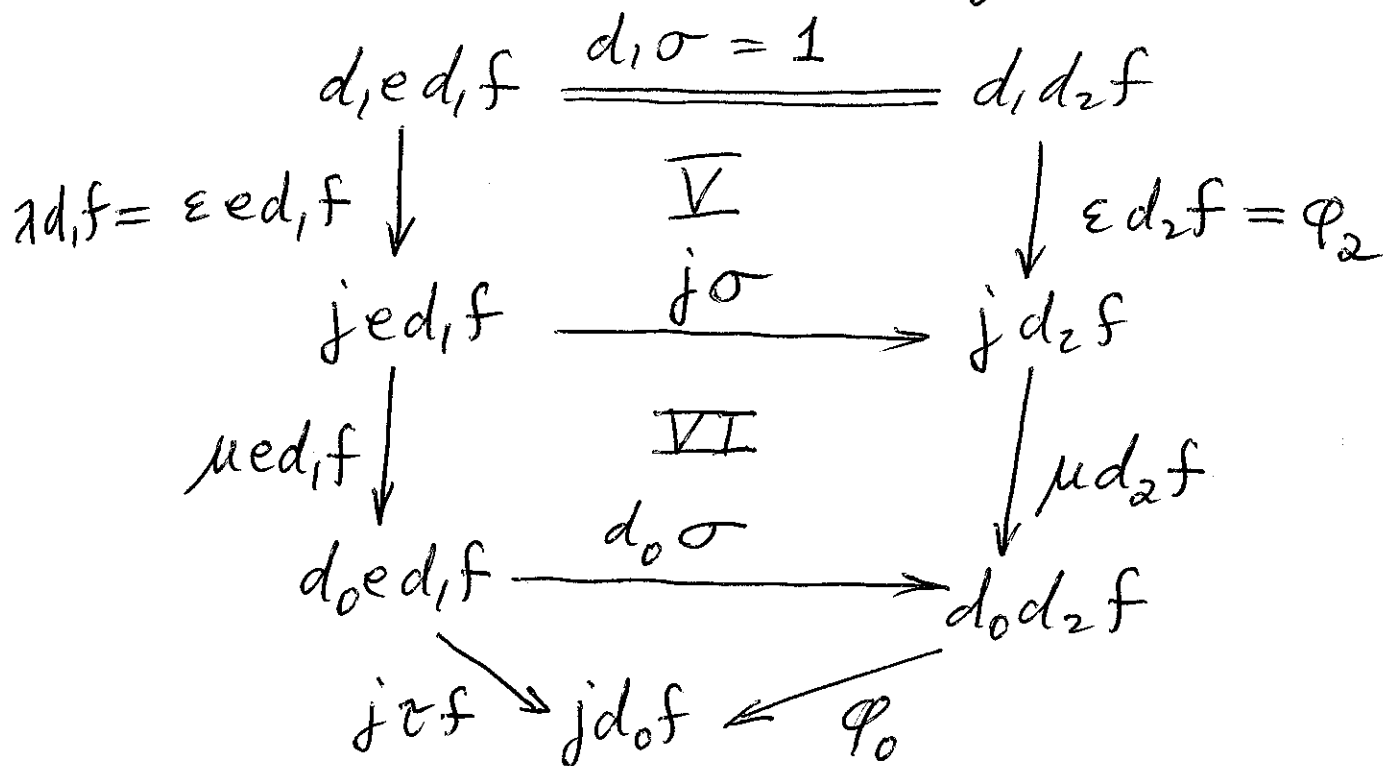 d₁σ = 1
d₁ed₁f d₁d₂f
λd₁f = εed₁f V εd₂f = φ₂
jσ
jed₁f jd₂f
μed₁f VI μd₂f
d₀σ
d₀ed₁f d₀d₂f
jτf jd₀f φ₀